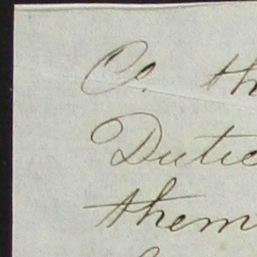 Co. th
Dutie
them